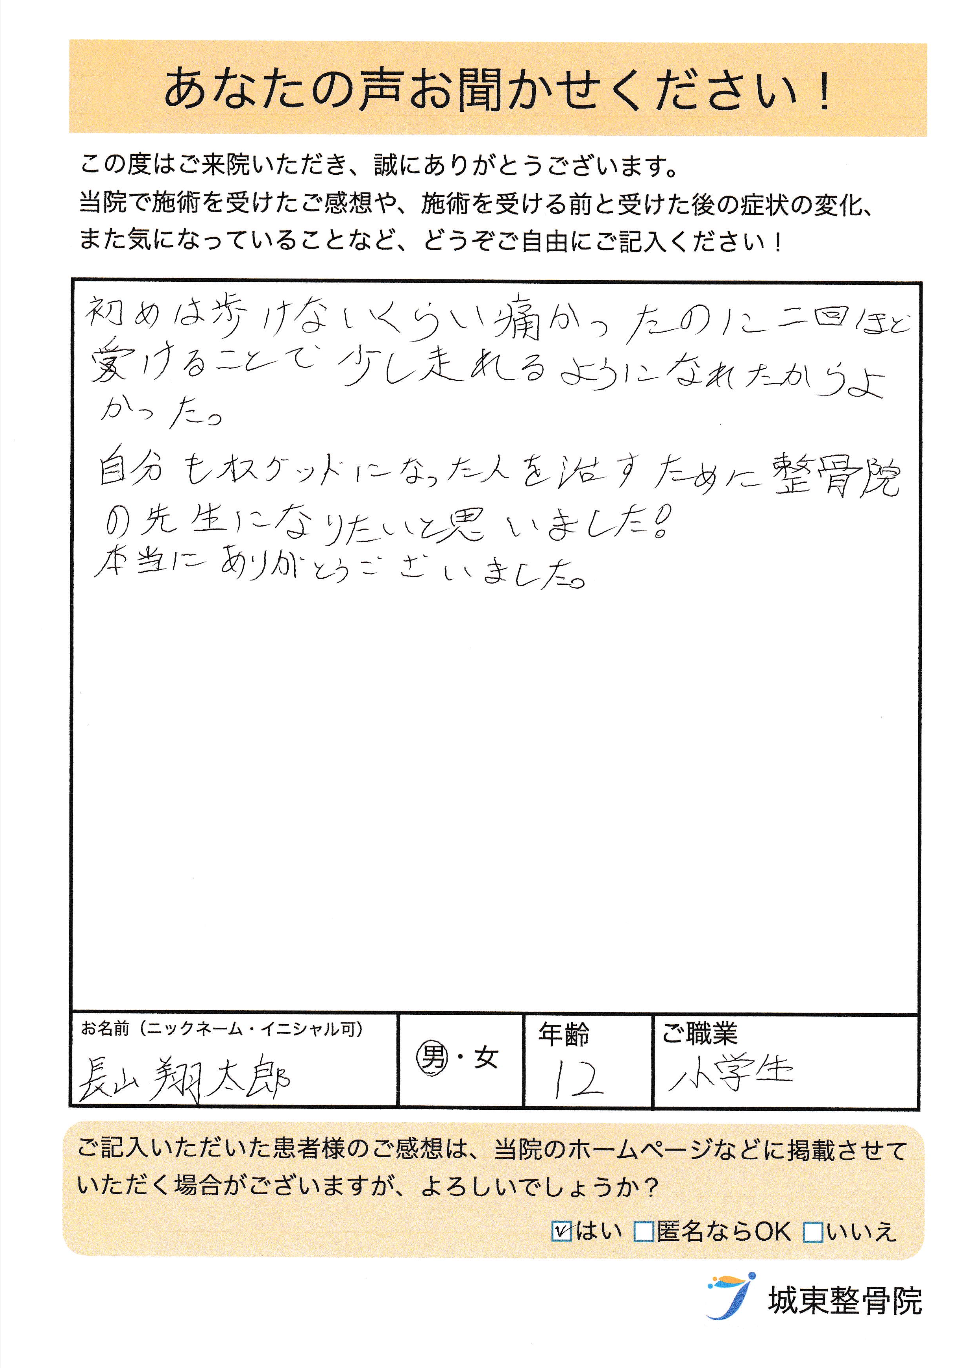 あなたの声お聞かせください！
この度はご来院いただき、誠にありがとうございます。
当院で施術を受けたご感想や、施術を受ける前と受けた後の症状の変化、
また気になっていることなど、どうぞご自由にご記入ください！
初めは歩けないくらい痛かったのに二回ほど
受けることで少し走れるようになれたからよ
かった。
自分もオスグッドになった人を治すために整骨院
の先生になりたいと思いました！
本当にありがとうございました。
お名前（ニックネーム・イニシャル可）
長山翔太郎
男・女
年齢
12
ご職業
小学生
ご記入いただいた患者様のご感想は、当院のホームページなどに掲載させて
いただく場合がございますが、よろしいでしょうか？
☑はい □匿名ならOK □いいえ
城東整骨院